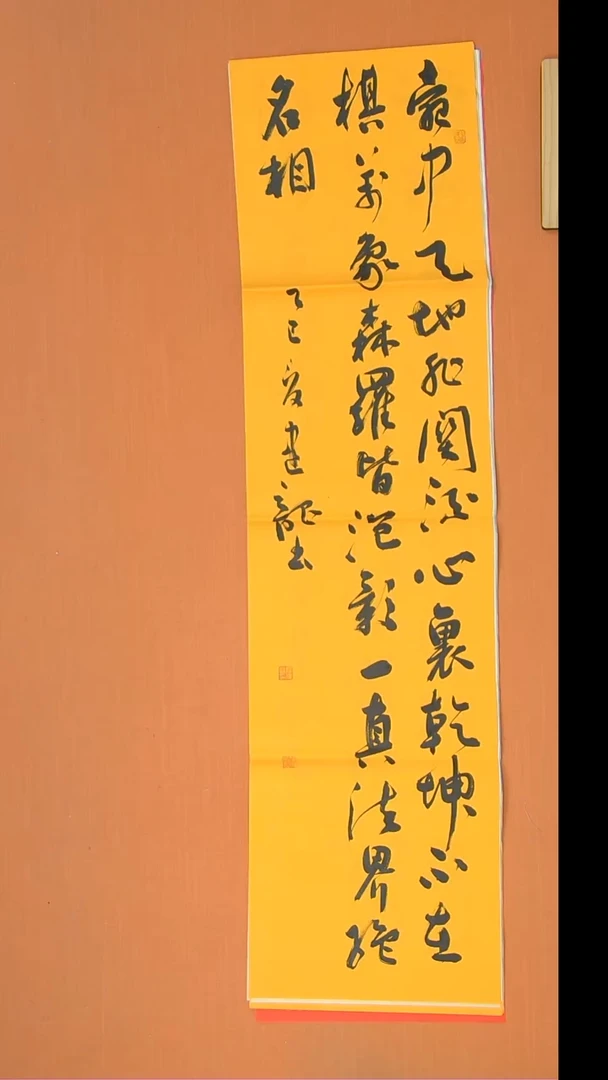 壺中天地非關酒心裏乾坤不在
棋萬象森羅皆泡影一真法界絕
名相
乙巳夏建龍書